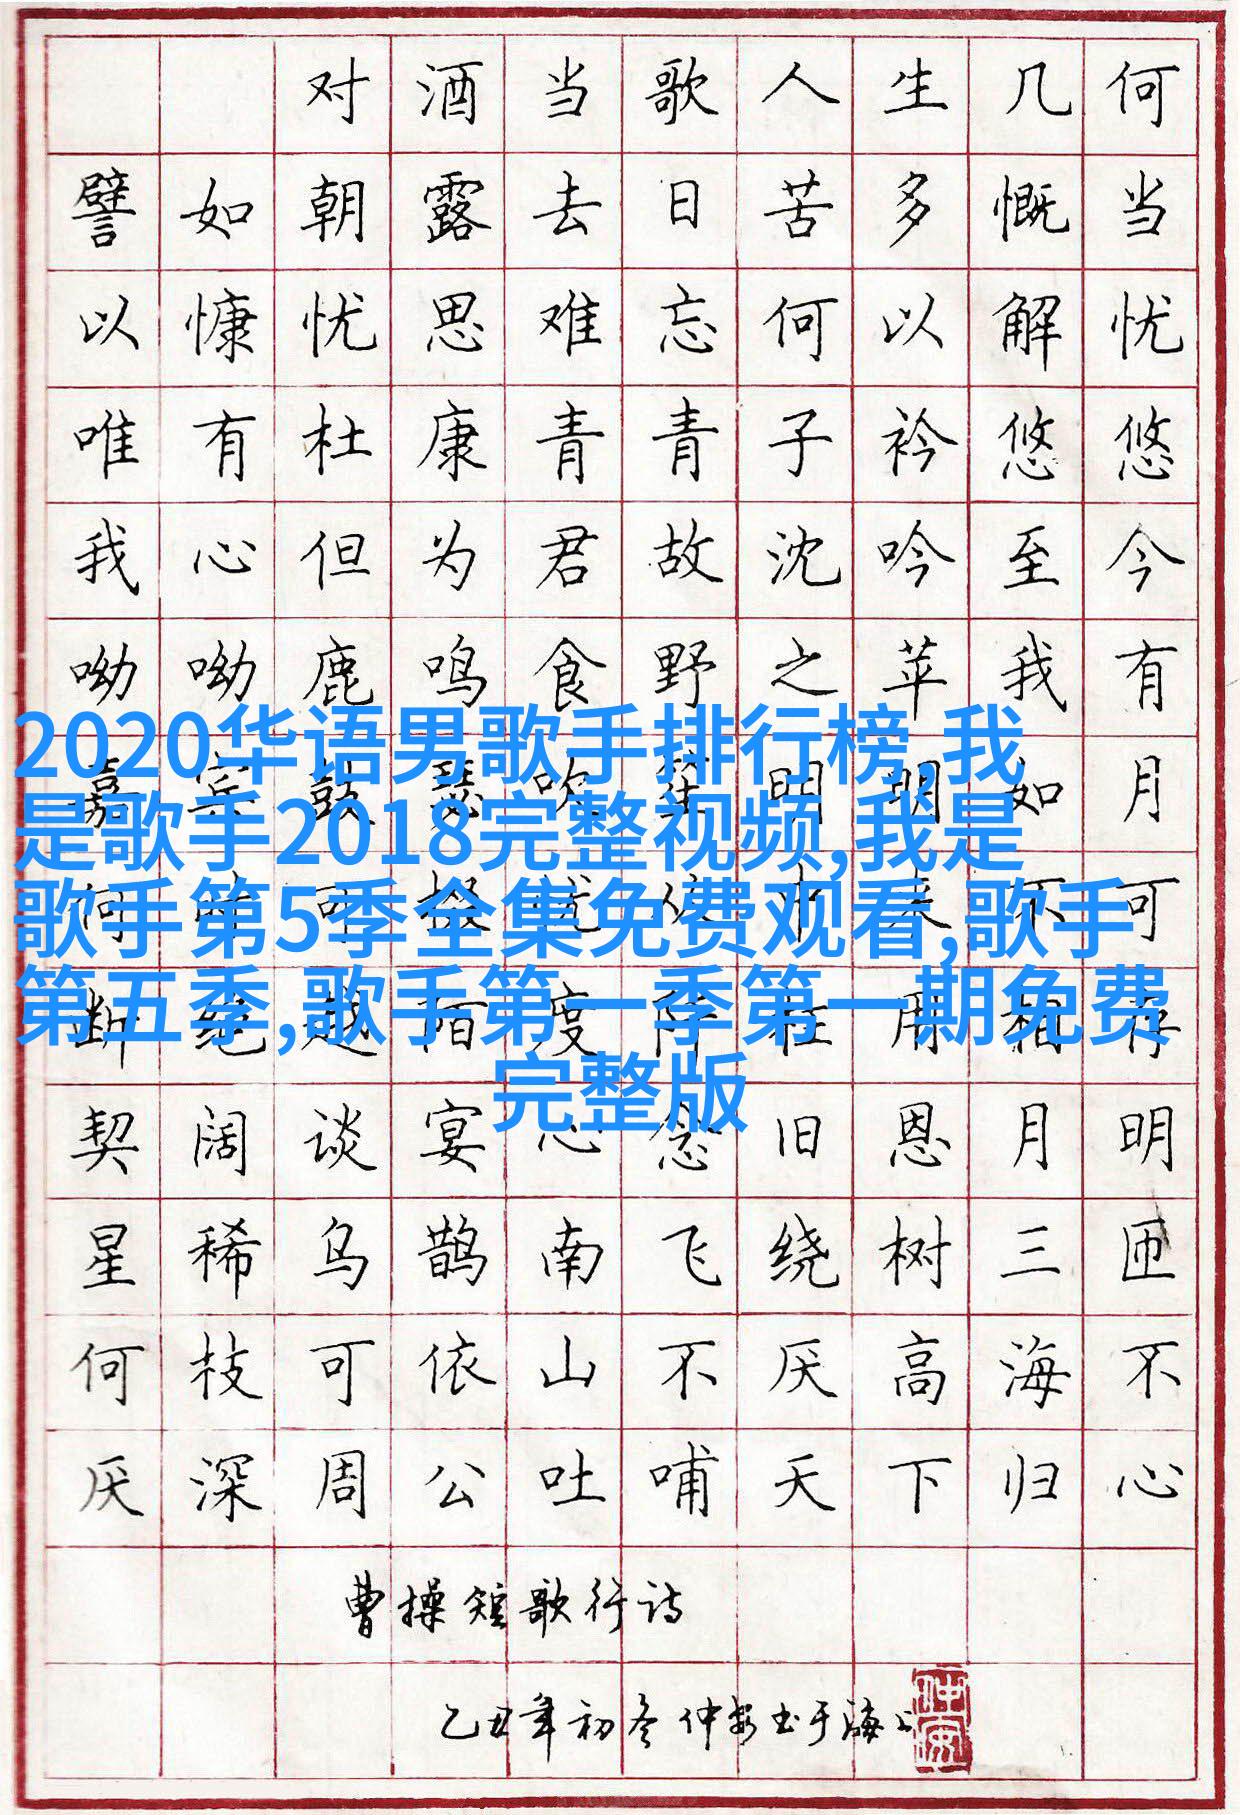 对酒当歌人生几何
譬如朝露去日苦多慨当
以慷忧思难忘何以解忧
唯有杜康青青子衿悠悠
我心但为君故沈吟至今
呦呦鹿鸣食野之苹我有
嘉宾鼓瑟吹笙明明如月
何时可掇忧从中来不可
断绝越陌度阡枉用相存
契阔谈宴心念旧恩月明
星稀乌鹊南飞绕树三匝
何枝可依山不厌高海不
厌深周公吐哺天下归心
曹操短歌行诗
乙丑年初冬仲安书于海上
仲安
2020华语男歌手排行榜,我
是歌手2018完整视频,我是
歌手第5季全集免费观看,歌手
第五季,歌手第一季第一期免费
完整版